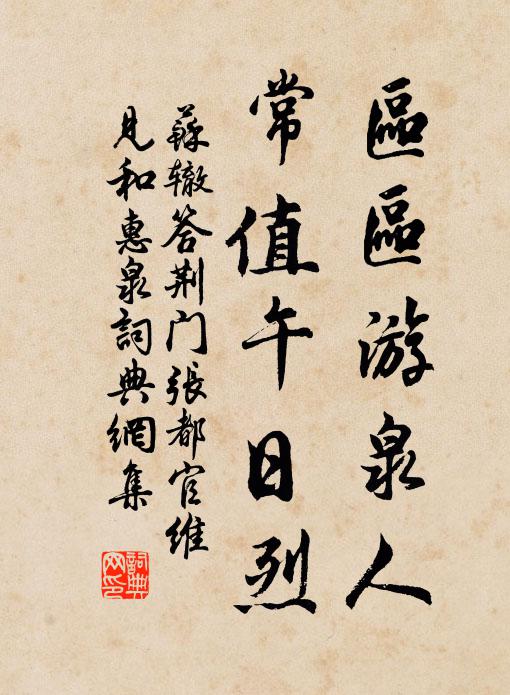 區區游泉人
常值午日烈
蘇辙答荆门張都官維
見和惠泉詞典網集
詞典网印